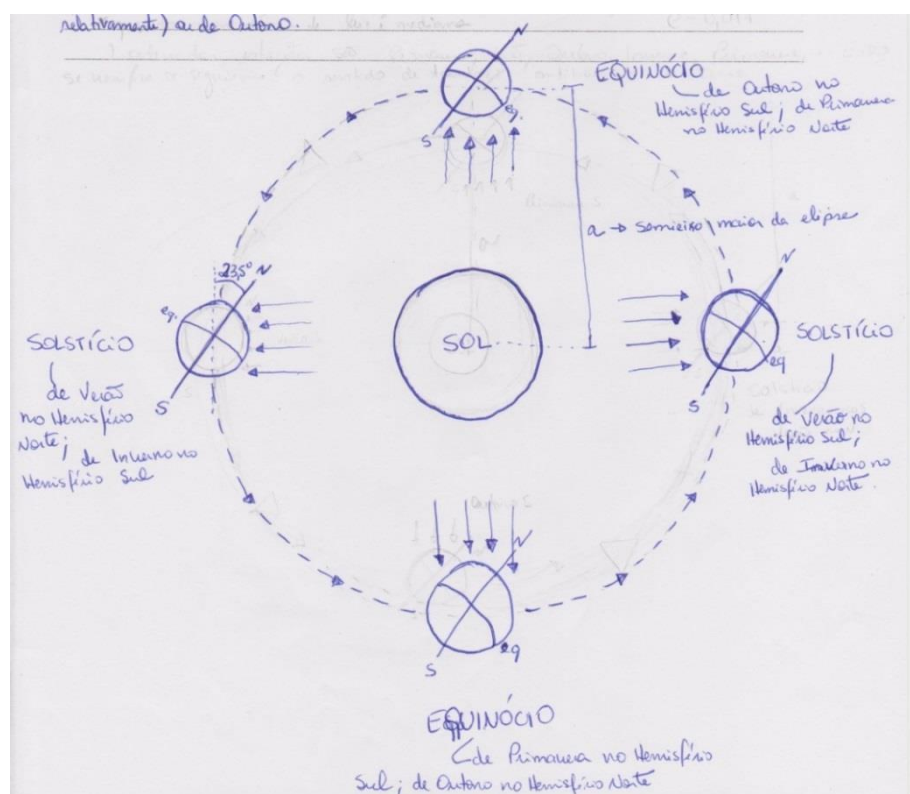 relativamente) ou de Outono.
N
EQUINÓCIO
de Outono no
Hemisfério Sul; de Primavera
no Hemisfério Norte
eq.
S
a → semieixo maior da elipse
23,5°
N
N
eq.
SOL
SOLSTÍCIO
de Verão
no Hemisfério
Norte;
de Inverno no
Hemisfério Sul
S
SOLSTÍCIO
eq
S
de Verão no
Hemisfério Sul;
de Inverno no
Hemisfério Norte.
N
S
eq
EQUINÓCIO
de Primavera no Hemisfério
Sul; de Outono no Hemisfério Norte